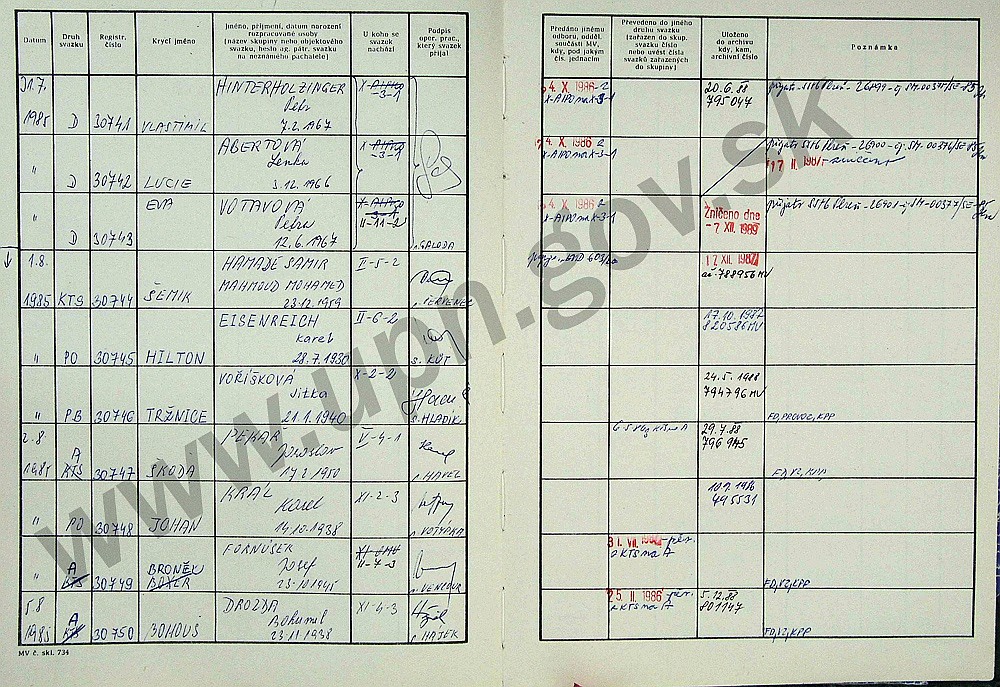 Datum
Druh
svazku
Registr.
číslo
Krycí jméno
Jméno, příjmení, datum narození
rozpracované osoby
(název skupiny nebo objektového
svazku, heslo ag. pátr. svazku
na neznámého pachatele)
U koho se
svazek
nachází
Podpis
oper. prac.,
který svazek
přijal
Předáno jinému
odboru, odděl.
součásti MV,
kdy, pod jakým
čís. jednacím
Převedeno do jiného
druhu svazku
(zařazen do skup.
svazku číslo
nebo uvést čísla
svazků zařazených
do skupiny)
Uloženo
do archivu
kdy, kam,
archivní číslo
Poznámka
31.7.
1985 D 30741 VLASTIMIL
HINTERHOLZINGER
Petr
7.2.1967
-3-1
4. X. 1986
X-AIPO na X-3-1
20.6.88
795047
" D 30742 LUCIE
ABERTOVÁ
Lenka
3.12.1966
-3-1
4. X. 1986
X-AIPO na X-3-1
" D 30743 EVA
VOTAVOVÁ
Petra
12.6.1967
II-11-2
GALODA
4. X. 1986
X-AIPO na X-3-1
Zničeno dne
-7 XII. 1989
1.8.
1985 KTS 30744 ŠEMÍK
HAMADE SAMIR
MAHMOUD MOHAMED
23.12.1959
II-5-2
ČERVENEC
17 XII. 1987
788956 MV
" PO 30745 HILTON
EISENREICH
Karel
28.7.1930
II-6-2
KÚT
17.10.1987
820586 MV
" PB 30746 TRŽNICE
VOŘÍŠKOVÁ
Jitka
21.1.1940
X-2-2
MLADÍK
24.5.1988
794796 MV
FD, PROVOZ, KPP
2.8
1985 A KTS 30747 ŠKODA
PEKAŘ
Jaroslav
17.2.1950
V-4-1
HAVEL
29.7.88
796945
FD, VZ, KPP
" PO 30748 JOHAN
KRÁL
Karel
14.10.1938
XI-2-3
VOTÝPKA
495531
" A KTS 30749 BRONĚK
BOXER
FORNŮSEK
Josef
23-10-1945
II-7-3
VENCOUR
31. VII.
KTS na A
FD, VZ, KPP
5.8
1985 A KTS 30750 BOHOUŠ
DROZDA
Bohumil
23.11.1938
XI-4-3
HÁJEK
25. II. 1986
KTS na A
5.12.88
801147
FD, VZ, KPP
MV č. skl. 734
www.upn.gov.sk